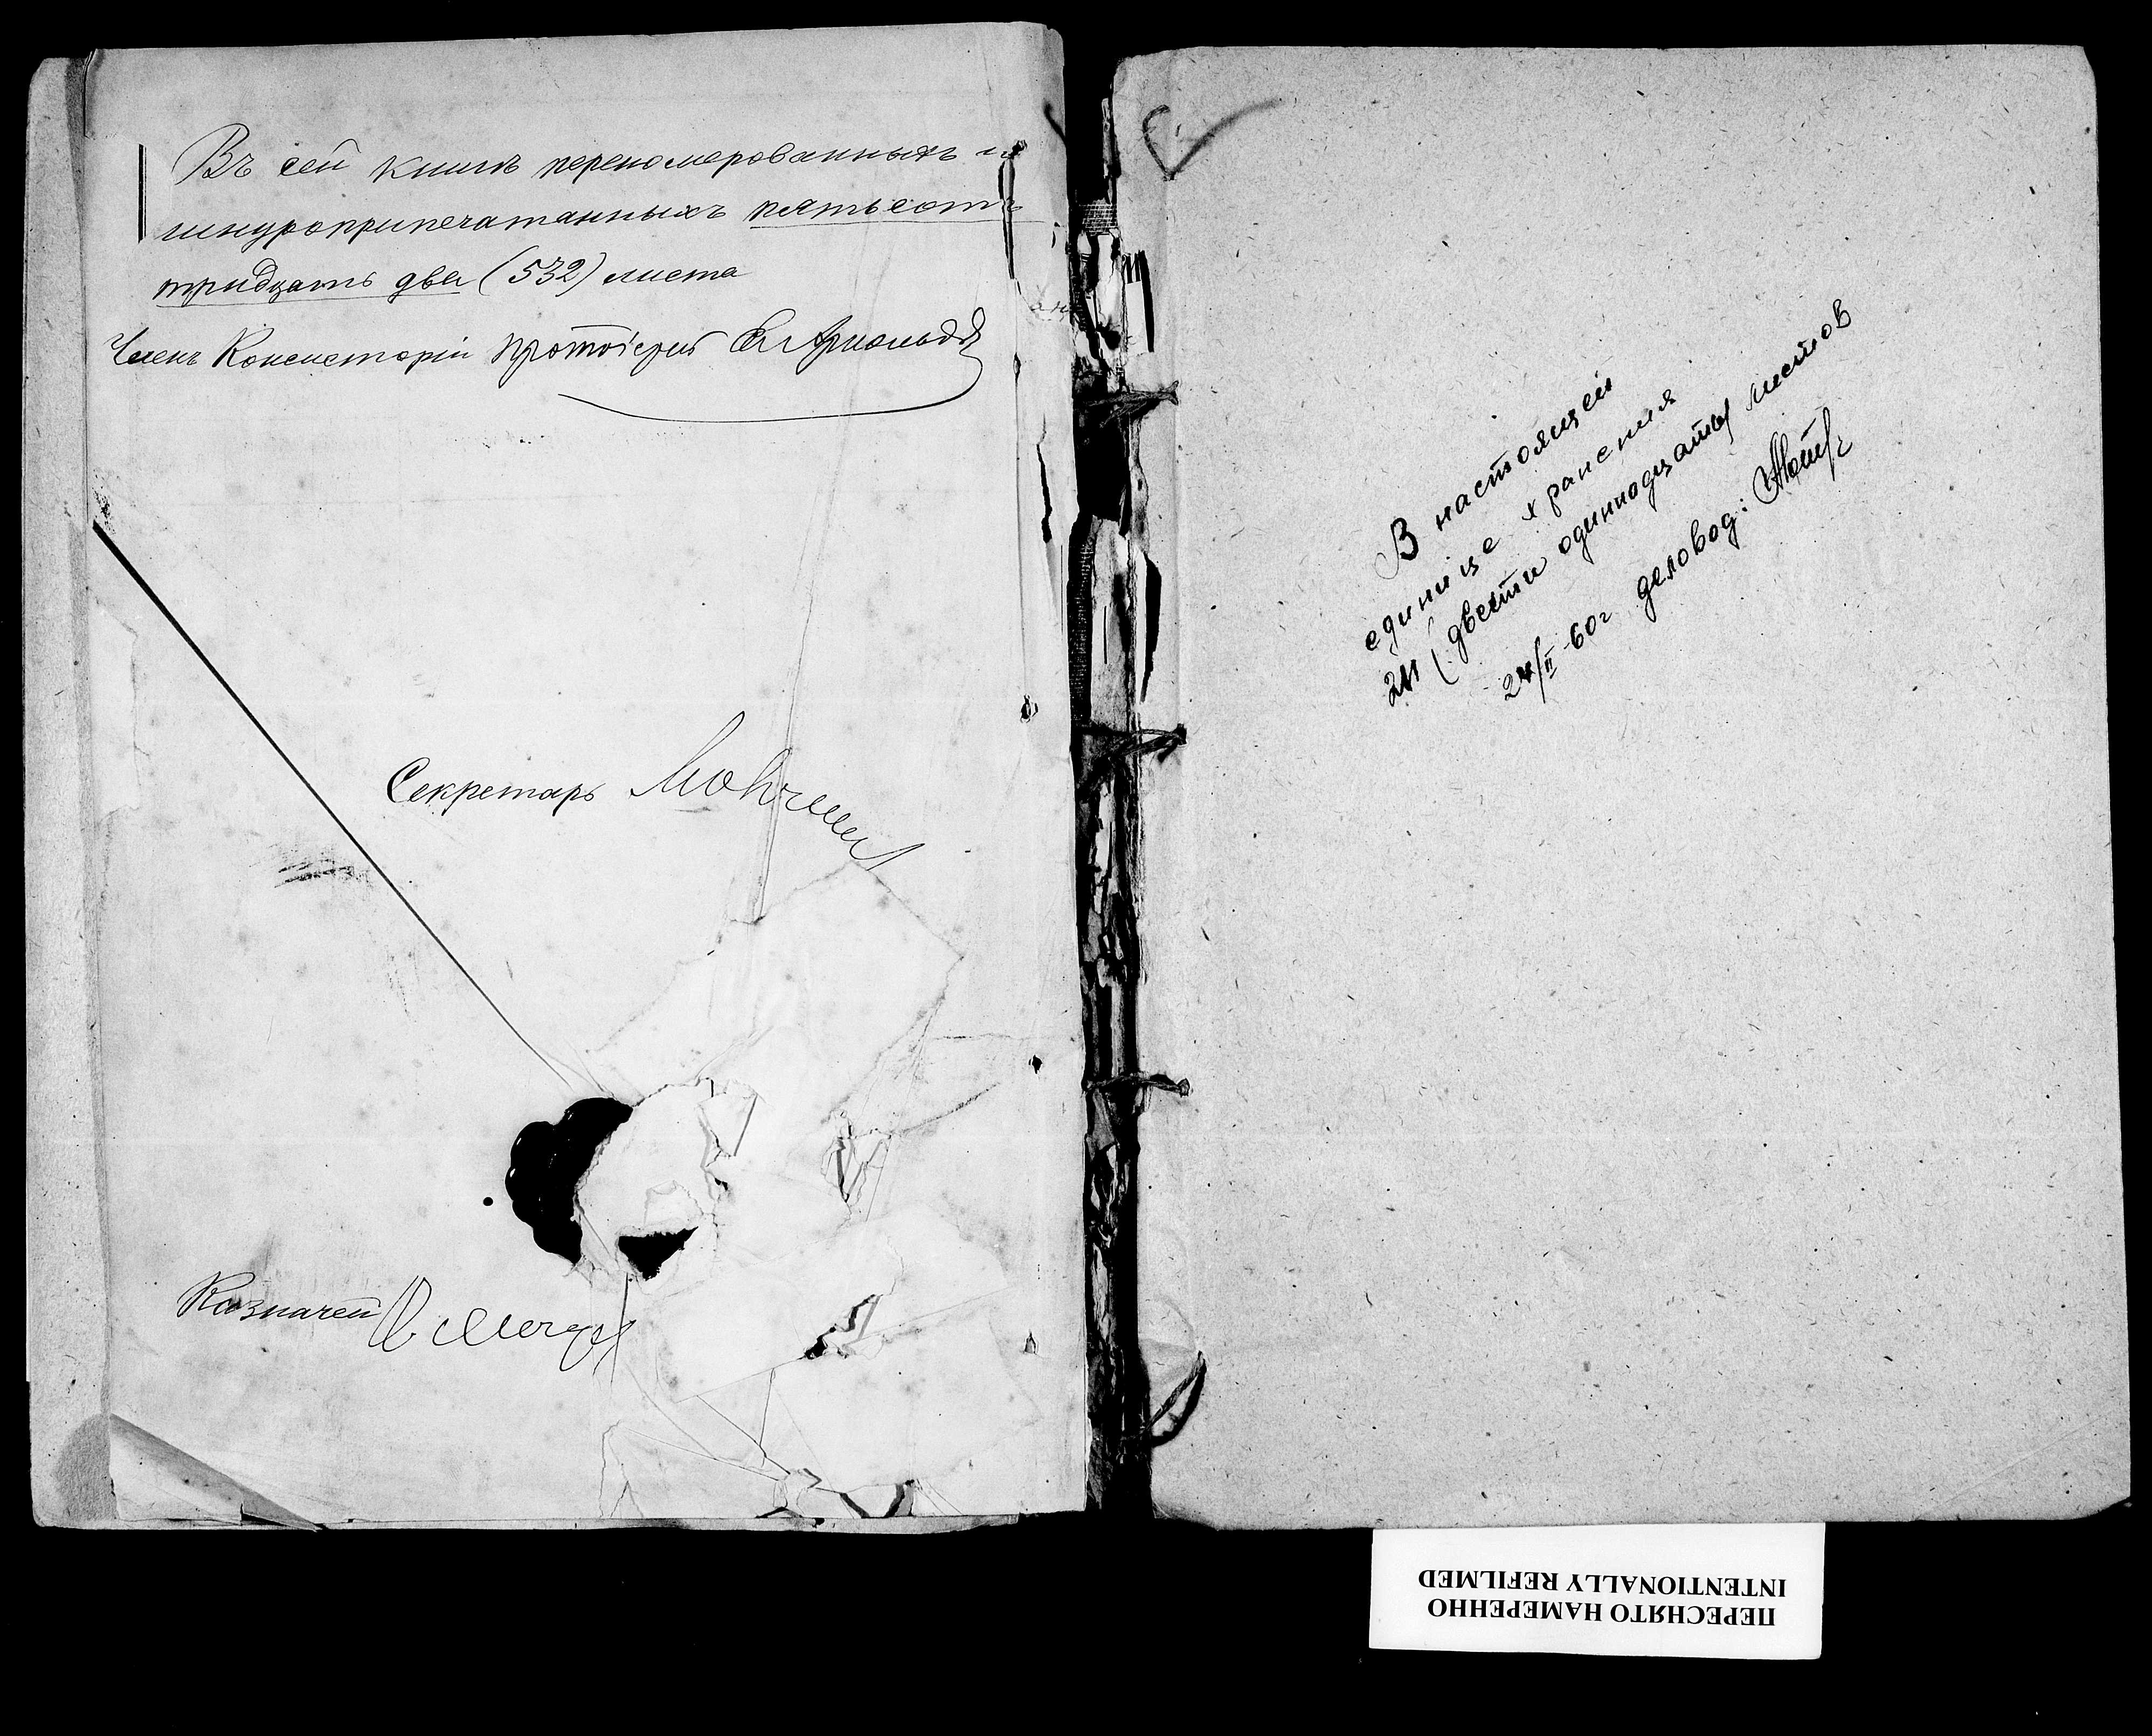 Въ сей книгѣ перенумерованныхъ и
шнуроприпечатанныхъ пятьсотъ
тридцать два (532) листа
Членъ Консисторіи Протоіерей Арнольдъ
Секретарь
Казначей
В настоящей
единице хранения
211 (двести одиннадцать) листов
24/II-60г деловод:
ПЕРЕСНЯТО НАМЕРЕННО
INTENTIONALLY REFILMED